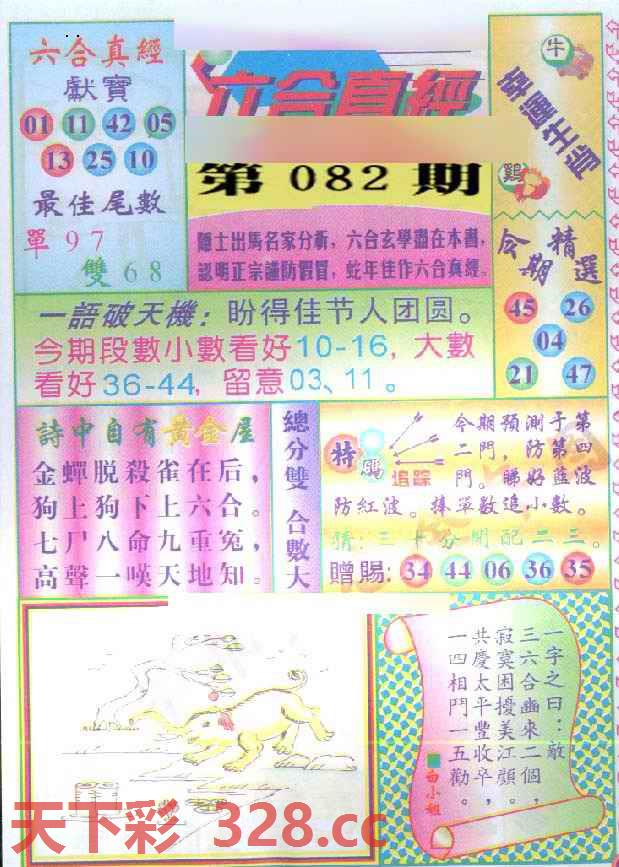 六合真經
獻寶
01 11 42 05
13 25 10
最佳尾數
單97
雙68
六合真經
第082期
隱士出馬名家分析，六合玄學盡在本書，
認明正宗謹防假冒，蛇年佳作六合真經。
牛
幸運生肖
鷄
今期精選
45 26
04
21 47
一語破天機：盼得佳节人团圆。
今期段數小數看好10-16，大數
看好36-44，留意03、11。
詩中自有黃金屋
金蟬脱殺雀在后，
狗上狗下上六合。
七尸八命九重冤，
高聲一嘆天地知。
總分雙 合數大
特
追踪
今期預測于第
二門，防第四
門。睇好藍波
防紅波。捧單數追小數。
猜：三十分開配二三。
贈賜：34 44 06 36 35
一字之曰：敵
三六合幽來二個，
寂寞困擾美江顧，
共慶太平豐收卒，
一四相門一五勸。
白小姐
天下彩 328.cc